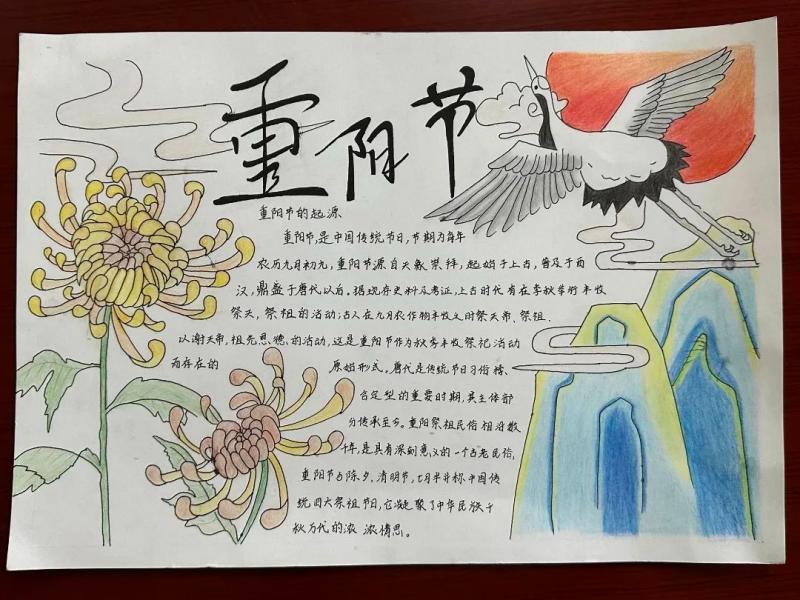 重阳节
重阳节的起源
重阳节,是中国传统节日,节期为每年
农历九月初九,重阳节源自天象崇拜,起始于上古,普及于西
汉,鼎盛于唐代以后。据现存史料及考证,上古时代有在季秋举行丰收
祭天,祭祖的活动;古人在九月农作物丰收之时祭天帝、祭祖,
以谢天帝,祖先恩德的活动,这是重阳节作为秋季丰收祭祀活动
而存在的 原始形式。唐代是传统节日习俗揉
合定型的重要时期,其主体部
分传承至今。重阳祭祖民俗相沿数
千年,是具有深刻意义的一个古老民俗,
重阳节与除夕,清明节,七月半并称中国传
统四大祭祖节日,它凝聚了中华民族千
秋万代的浓 浓情思。